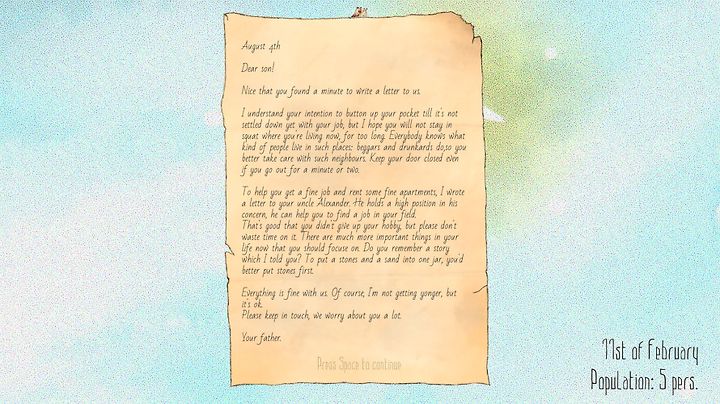 August 4th
Dear son!
Nice that you found a minute to write a letter to us.
I understand your intention to button up your pocket till it's not
settled down yet with your job, but I hope you will not stay in
squat where you're living now, for too long. Everybody knows what
kind of people live in such places: beggars and drunkards do,so you
better take care with such neighbours. Keep your door closed even
if you go out for a minute or two.
To help you get a fine job and rent some fine apartments, I wrote
a letter to your uncle Alexander. He holds a high position in his
concern, he can help you to find a job in your field.
That's good that you didn't give up your hobby, but please don't
waste time on it. There are much more important things in your
life now that you should focus on. Do you remember a story
which I told you? To put a stones and a sand into one jar, you'd
better put stones first.
Everything is fine with us. Of course, I'm not getting yonger, but
it's ok.
Please keep in touch, we worry about you a lot.
Your father.
Press Space to continue
11st of February
Population: 5 pers.